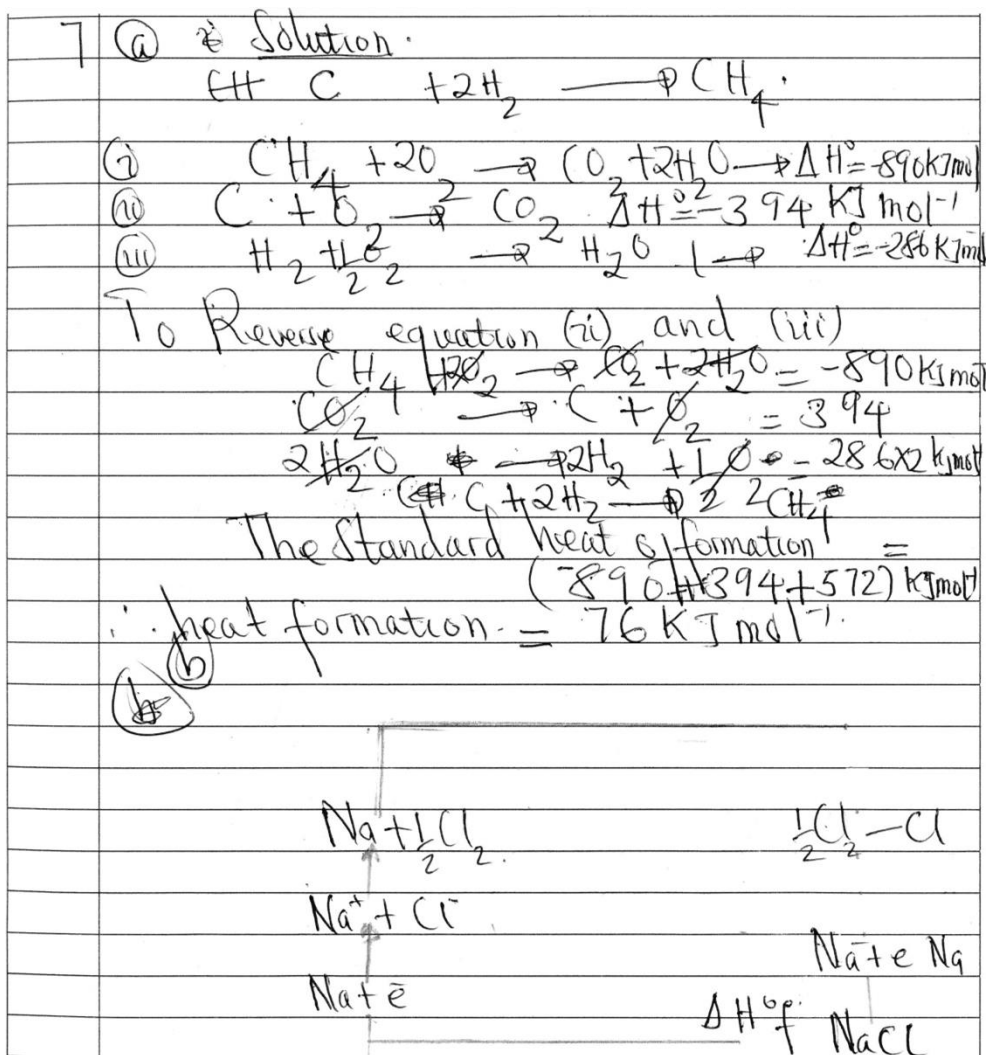 7 (a) Solution.
C + 2H₂ → CH₄.
(i) CH₄ + 2O₂ → CO₂ + 2H₂O → ΔH° = -890KJmol
(ii) C + O₂ → CO₂ ΔH° = -394 KJ mol⁻¹
(iii) H₂ + ½O₂ → H₂O → ΔH° = -286KJmol
To Reverse equation (ii) and (iii)
CH₄ + 2O₂ → CO₂ + 2H₂O = -890KJmol
CO₂ → C + O₂ = 394
2H₂O → 2H₂ + 1O - 286x2 kJmol
C + 2H₂ → 2CH₄
The Standard heat of formation =
(-890 + 394 + 572) KJmol⁻¹
∴ heat formation = 76 KJ mol⁻¹.
(b)
Na + ½Cl₂. ½Cl₂ - Cl
Na⁺ + Cl⁻
Na + e Na
Na + ē
ΔH°f NaCl